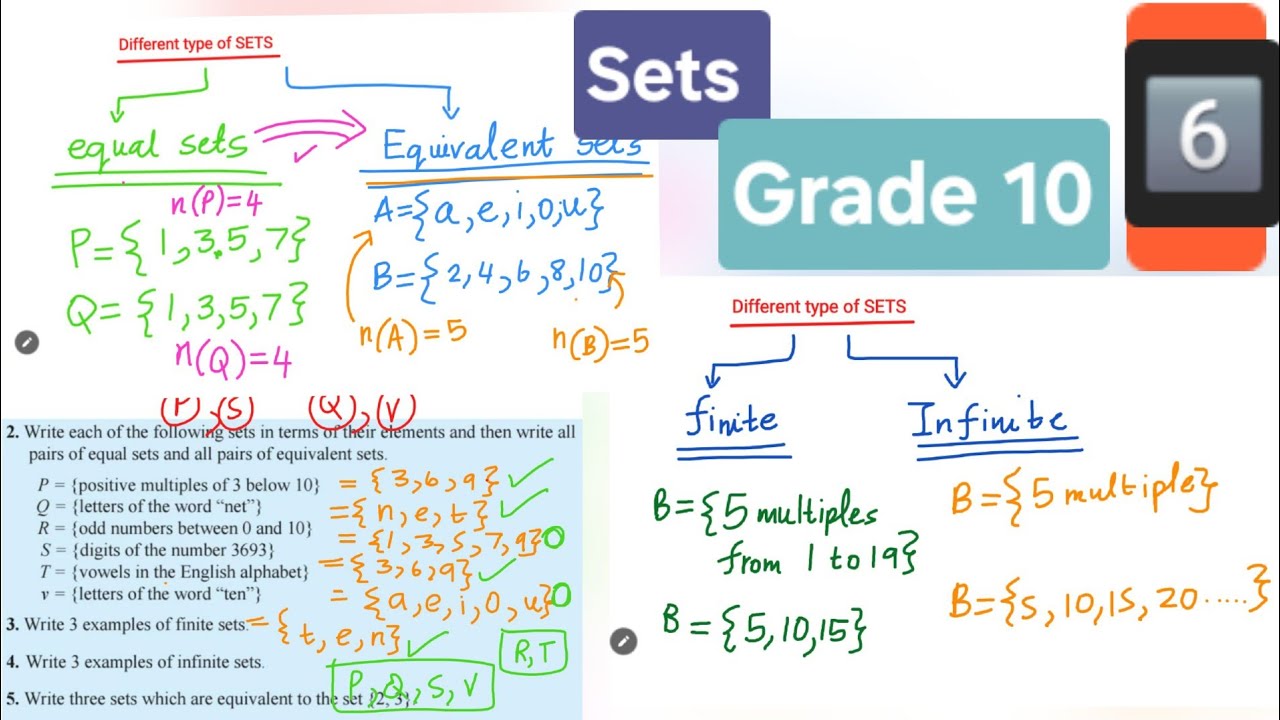 Different type of SETS
equal sets
Equivalent sets
n(P)=4
P={1,3,5,7}
Q={1,3,5,7}
n(Q)=4
A={a,e,i,o,u}
B={2,4,6,8,10}
n(A)=5 n(B)=5
Sets
Grade 10
6
(P),(S) (Q),(V)
2. Write each of the following sets in terms of their elements and then write all
pairs of equal sets and all pairs of equivalent sets.
P = {positive multiples of 3 below 10} = {3,6,9} ✓
Q = {letters of the word “net”} ={n,e,t} ✓
R = {odd numbers between 0 and 10} = {1,3,5,7,9} O
S = {digits of the number 3693} = {3,6,9} ✓
T = {vowels in the English alphabet} = {a,e,i,o,u} O
v = {letters of the word “ten”}
3. Write 3 examples of finite sets. = {t,e,n} ✓
4. Write 3 examples of infinite sets.
R,T
P,Q,S,V
5. Write three sets which are equivalent to the set {2, 3}.
Different type of SETS
finite
Infinite
B={5 multiples
from 1 to 19}
B={5,10,15}
B={5 multiple}
B={5,10,15,20.....}